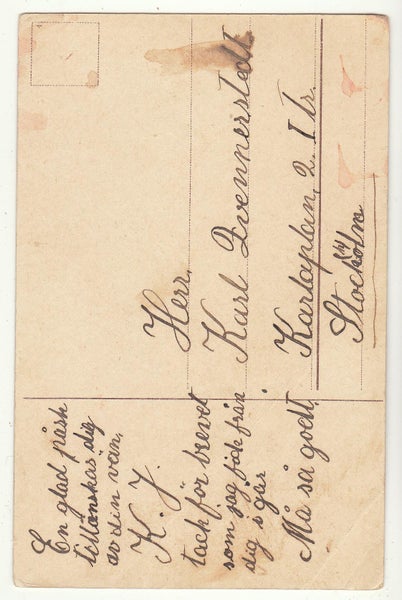 En glad påsk
tillönskas dig
av din vän,
K. J.
tack för brevet
som jag fick från
dig i går
Må så godt,
Herr.
Karl Zvennerstedt
Karlaplan, 2. I tr.
Stockholm